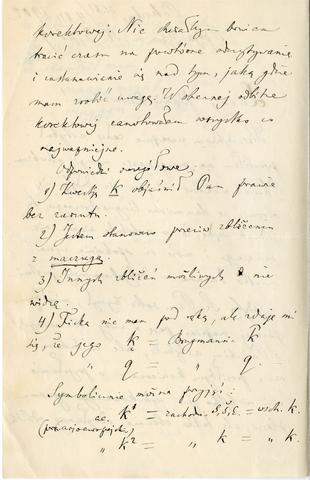 korektowej. Nie chciałbym bowiem
tracić czasu na powtórne odczytywanie
i zastanawianie się nad tym, jaką gdzie
mam zrobić uwagę. W obecnej odbitce
korektowej zanotowałem wszystko co
najważniejsze.
Odpowiedzi szczegółowe.
1) Kwestyę k objaśnił Pan prawie
bez zarzutu.
2) Jestem stanowczo przeciw zbliżeniu
z maczugą.
3) Innych zbliżeń możliwych nie
widzę.
4) Ficka nie mam pod ręką, ale zdaje mi
się, że jego k = Brugmann. k̂
" q = " q.
Symbolicznie można przyjąć:
ae. k¹ = zachodn. = wsch. k.
(pranarjoeuropejsk.)
" k² = " k = " k.